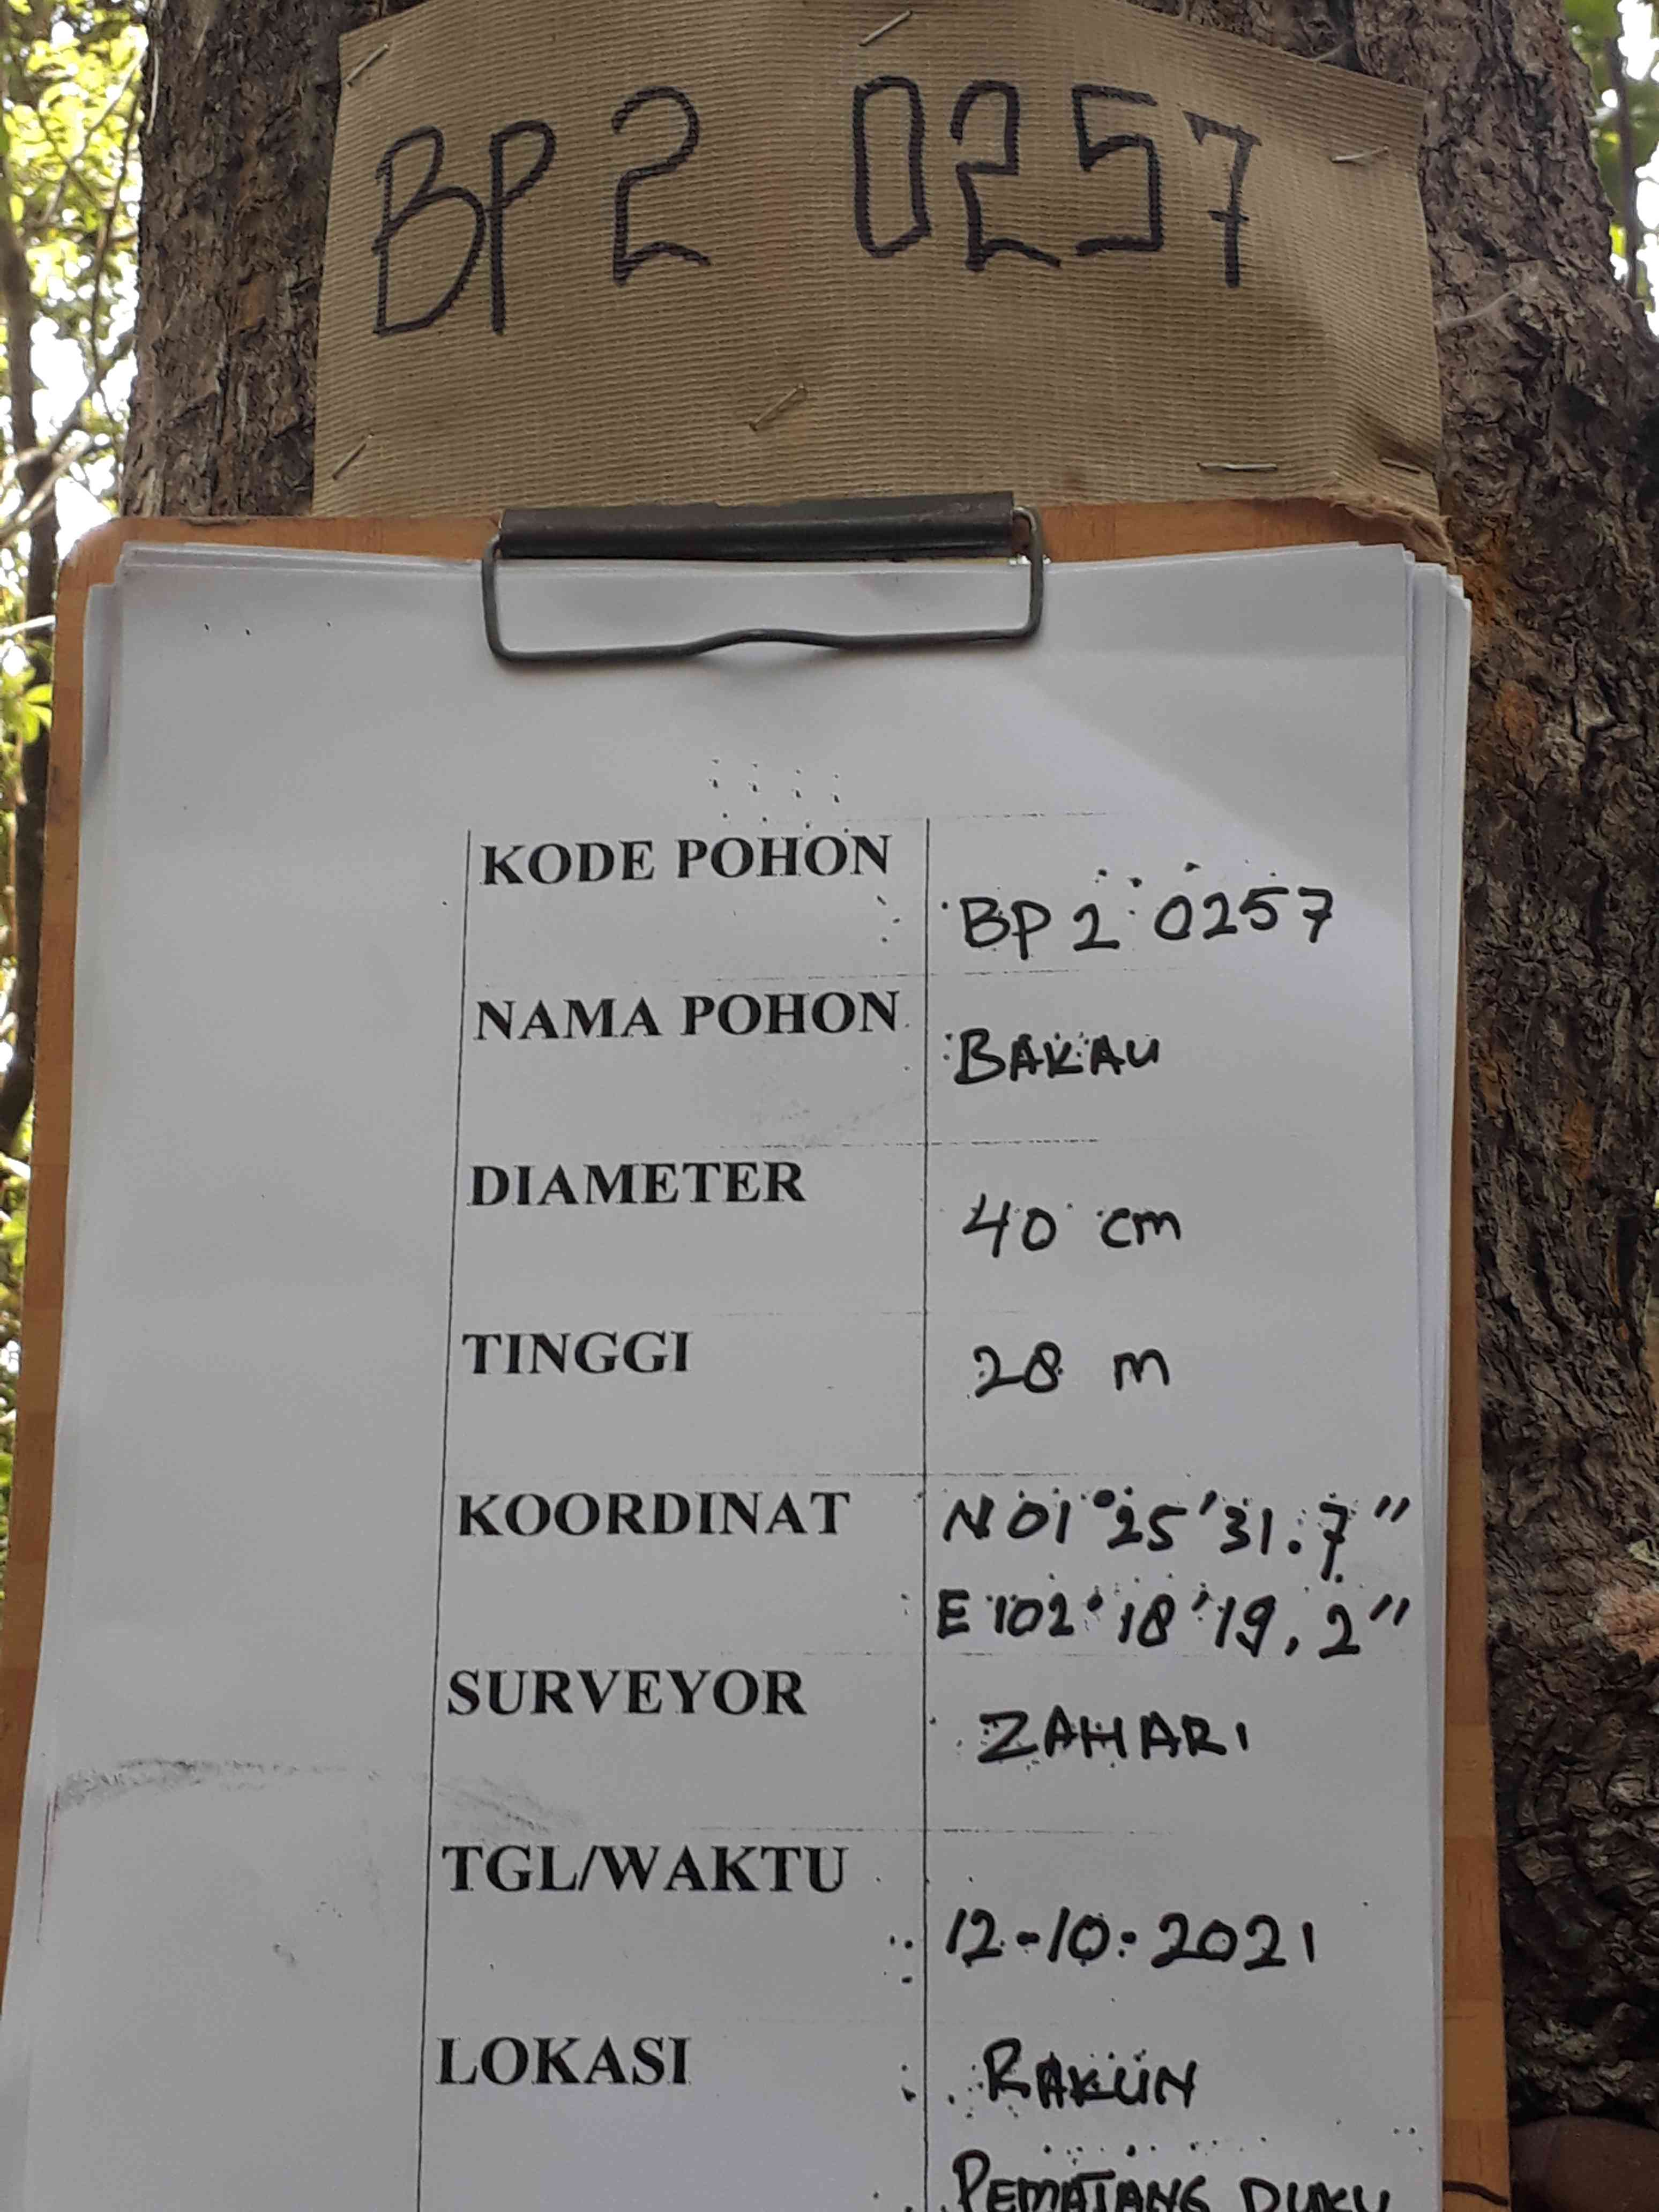 BP 2 0257
KODE POHON
BP 2 0257
NAMA POHON
BAKAU
DIAMETER
40 cm
TINGGI
28 m
KOORDINAT
N 01° 25' 31.7"
E 102° 18' 19.2"
SURVEYOR
ZAHARI
TGL/WAKTU
12-10-2021
LOKASI
RAKUN
PEMATANG DUKU